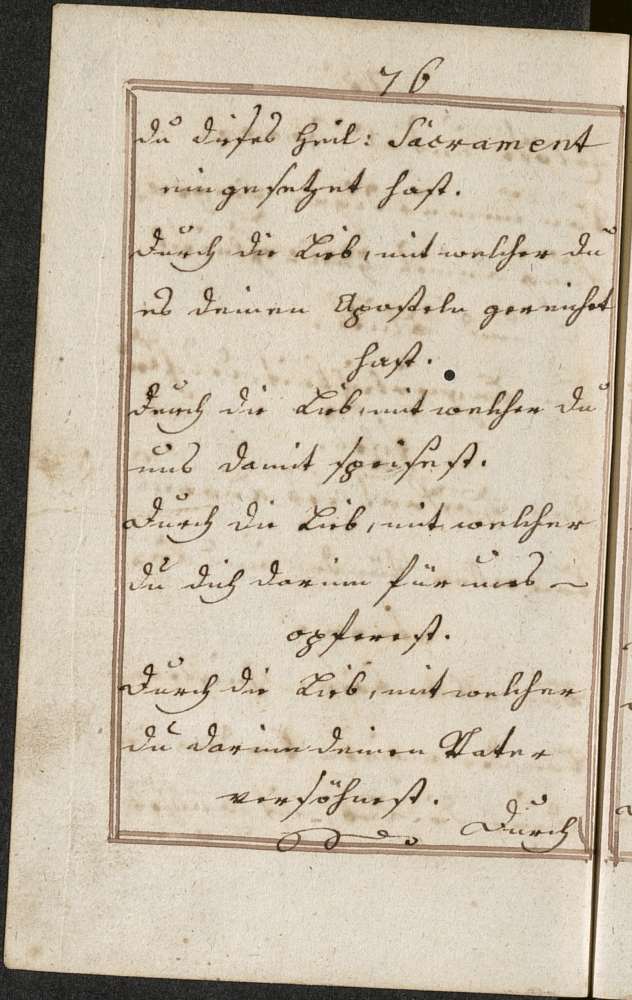 76
du dieses Heil: Sacrament
eingesetzet hast.
Durch die Lieb, mit welcher du
es deinen Aposteln gereichet
hast.
Durch die Lieb, mit welcher du
uns damit speisest.
Durch die Lieb, mit welcher
du dich darinn für uns
opferest.
Durch die Lieb, mit welcher
du darinn deinen Vater
versöhnest.
Durch